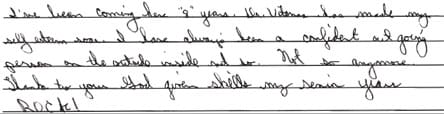 I've been coming here "8" years. Dr. Vitenas has made my
self esteem soar. I have always been a confident out going
person on the outside inside not so. Not so anymore.
Thanks to your God given skills my senior years
ROCK!